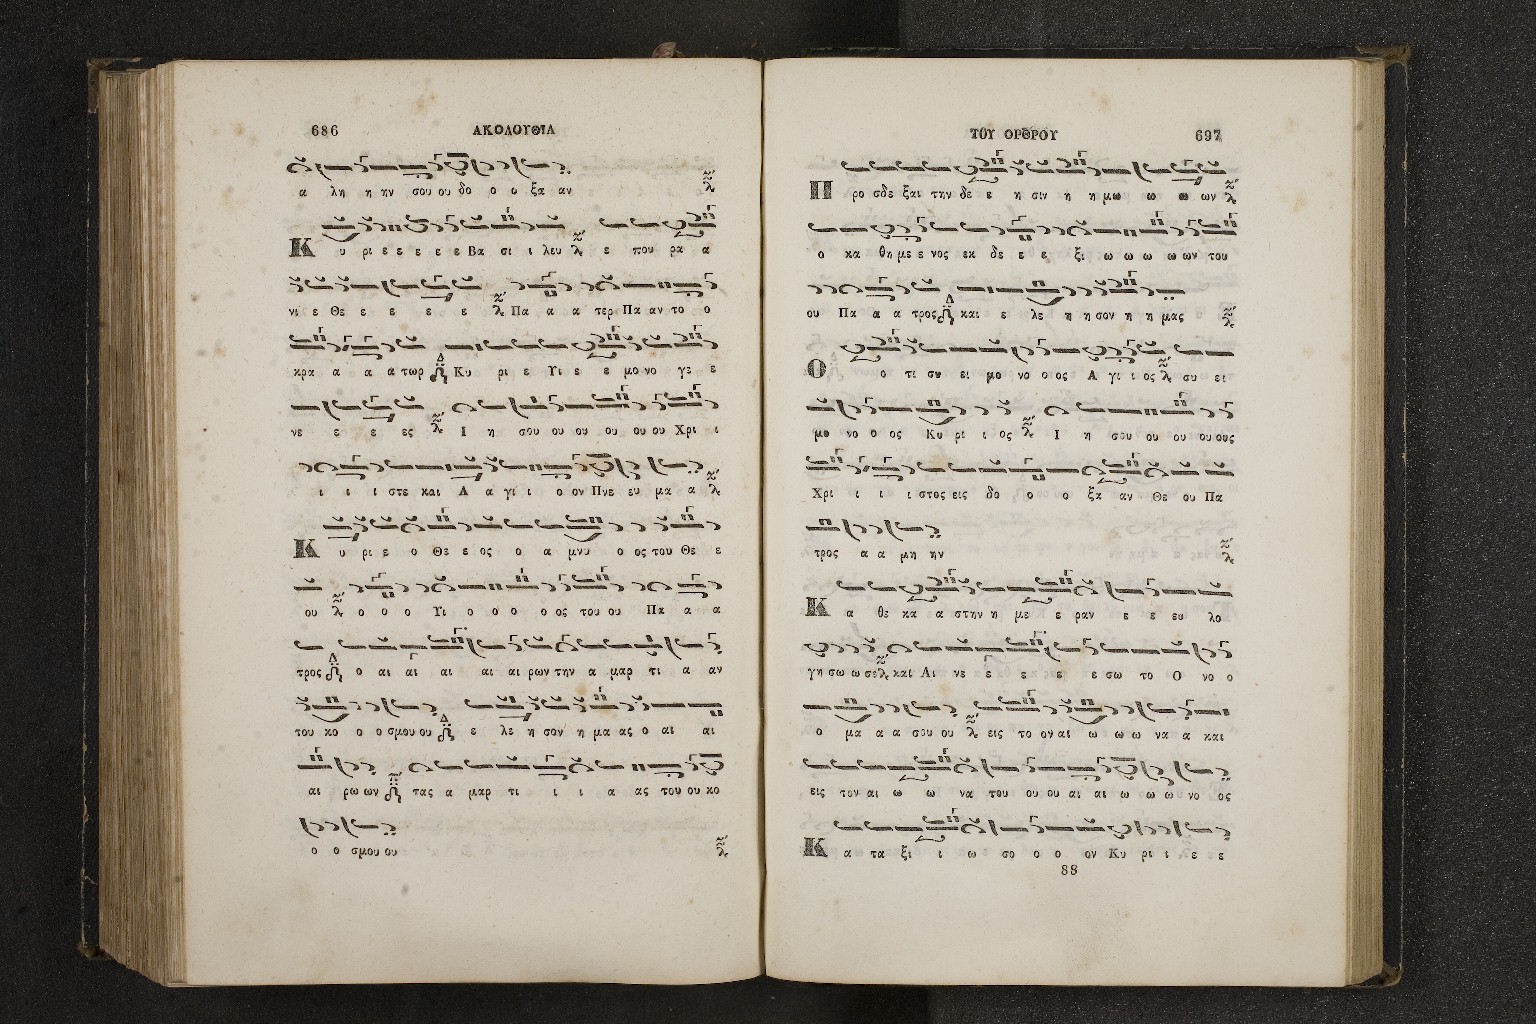 686
ΑΚΟΛΟΥΘΙΑ
α λη η ην σου ου δο ο ω ξα αν
Κ υ ρι ε ε ε ε ε ε Βα σι ι λευ ε που ρα α
νι ε Θε ε ε ε ε Πα α α τερ Πα αν το ο
κρα α α α τωρ Κυ ρι ε Υι ε ε μο νο γε ε
νε ε ε ες Ι η σου ου ου ου ου ου Χρι ι
ι ι ι στε και Α α γι ι ο ον Πνε ευ μα α
Κ υ ρι ε ο Θε ε ος ο α μνυ ο ος του Θε ε
ου ο ο ο Υι ο ο ο ο ος του ου Πα α α
τρος ο αι αι αι αι αι ρων την α μαρ τι α αν
του κο ο ο σμου ου ε λε η σον η μα ας ο αι αι
αι ρω ων τας α μαρ τι ι ι α ας του ου κο
ο ο σμου ου
ΤΟΥ ΟΡΘΡΟΥ
697
Π ρο σδε ξαι την δε ε η σιν η η μω ω ω ων
ο κα θη με ε νος εκ δε ε ε ξι ω ω ω ω ων του
ου Πα α α τρος και ε λε η η σον η η μας
Ο ο τι συ ει μο νο ο ος Α γι ι ος συ ει
μο νο ο ος Κυ ρι ι ος Ι η σου ου ου ου ους
Χρι ι ι ι στος εις δο ο ο ξα αν Θε ου Πα
τρος α α μη ην
Κ α θε κα α στην η με ε ραν ε ε ευ λο
γη σω ω σε και Αι νε ε ε ε ε σω το Ο νο ο
ο μα α α σου ου εις το ον αι ω ω ω να α και
εις τον αι ω ω να του ου ου αι αι ω ω ω νο ος
Κ α τα ξι ι ω σο ο ο ον Κυ ρι ι ε ε
88